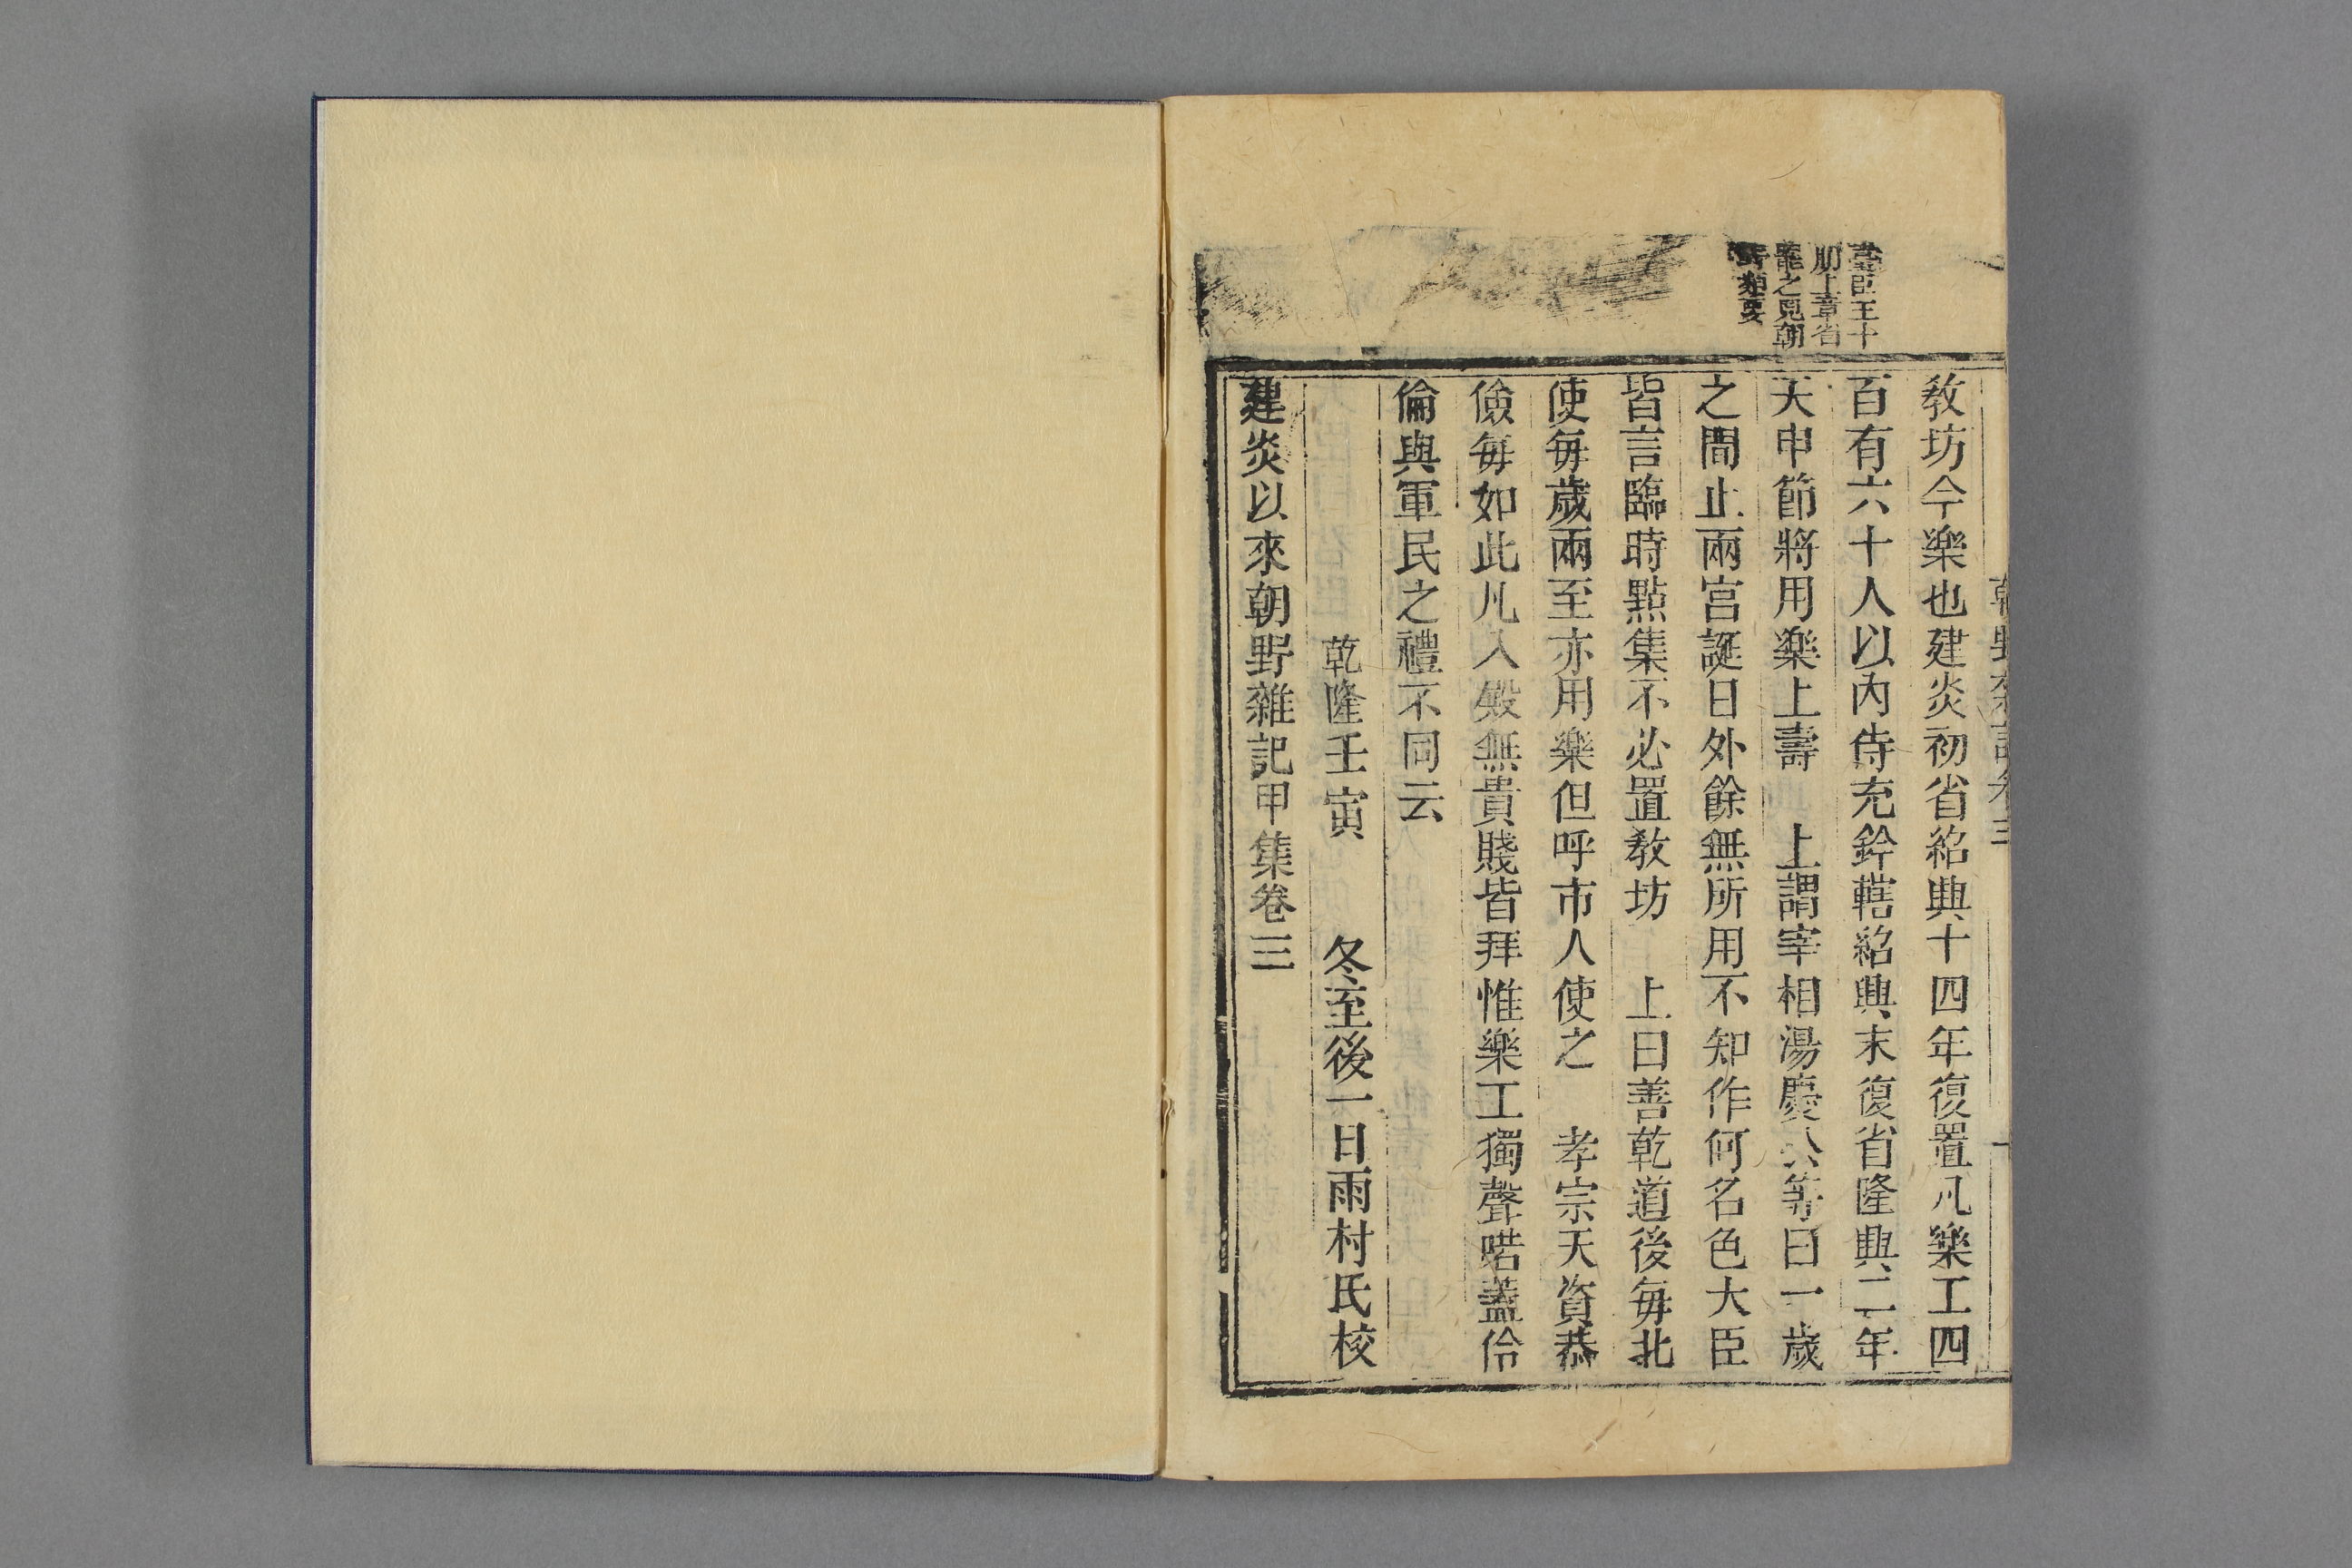 臺臣王十
朋上章省
罷之見朝
野類要
朝野杂記卷三
教坊今樂也建炎初省紹興十四年復置凡樂工四
百有六十人以內侍充鈐轄紹興末復省隆興二年
天申節將用樂上壽　上謂宰相湯慶公等曰一歲
之間止兩宮誕日外餘無所用不知作何名色大臣
皆言臨時點集不必置教坊　上曰善乾道後每北
使每歲兩至亦用樂但呼市人使之　孝宗天資恭
儉每如此凡入殿無貴賤皆拜惟樂工獨聲喏蓋伶
倫與軍民之禮不同云
乾隆壬寅　冬至後一日雨村氏校
建炎以來朝野雜記甲集卷三